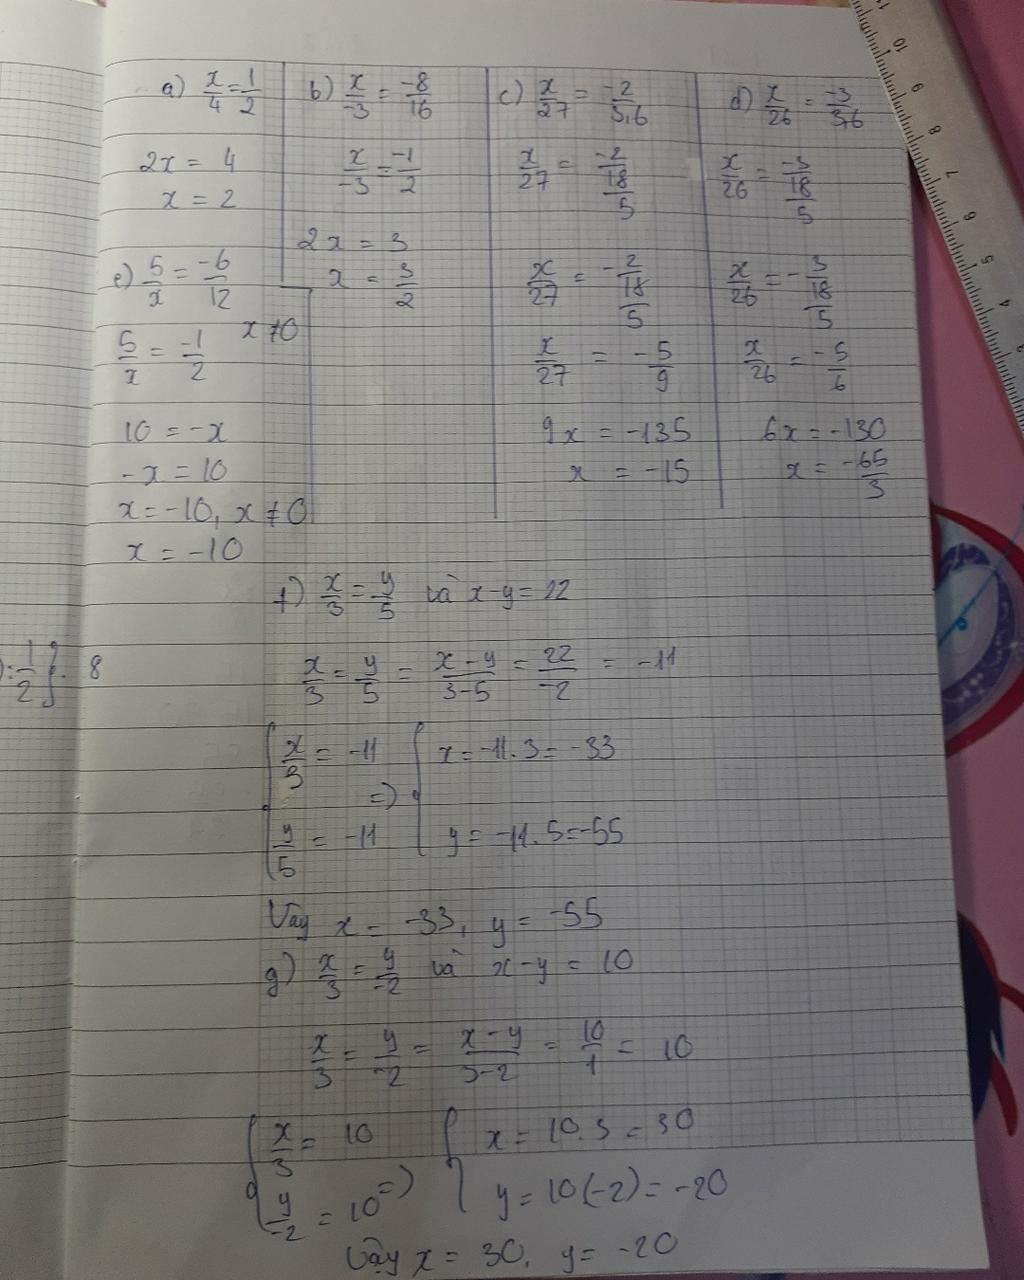 a) x/4 = 1/2
2x = 4
x = 2
b) x/-3 = -8/16
x/-3 = -1/2
2x = 3
x = 3/2
c) x/27 = -2/3,6
x/27 = -2/(18/5)
x/27 = -2/(18/5)
x/27 = -5/9
9x = -135
x = -15
d) x/26 = -3/3,6
x/26 = -3/(18/5)
x/26 = -3/(18/5)
x/26 = -5/6
6x = -130
x = -65/3
e) 5/x = -6/12
x ≠ 0
5/x = -1/2
10 = -x
-x = 10
x = -10, x ≠ 0
x = -10
f) x/3 = y/5 và x-y = 22
): 1/2 } . 8
x/3 = y/5 = (x-y)/(3-5) = 22/-2 = -11
{ x/3 = -11 => { x = -11.3 = -33
y/5 = -11 y = -11.5 = -55
Vậy x = -33, y = -55
g) x/3 = y/-2 và x-y = 10
x/3 = y/-2 = (x-y)/(3-2) = 10/1 = 10
{ x/3 = 10 => { x = 10.3 = 30
y/-2 = 10 y = 10(-2) = -20
Vậy x = 30, y = -20
11
10
9
8
7
6
5
4